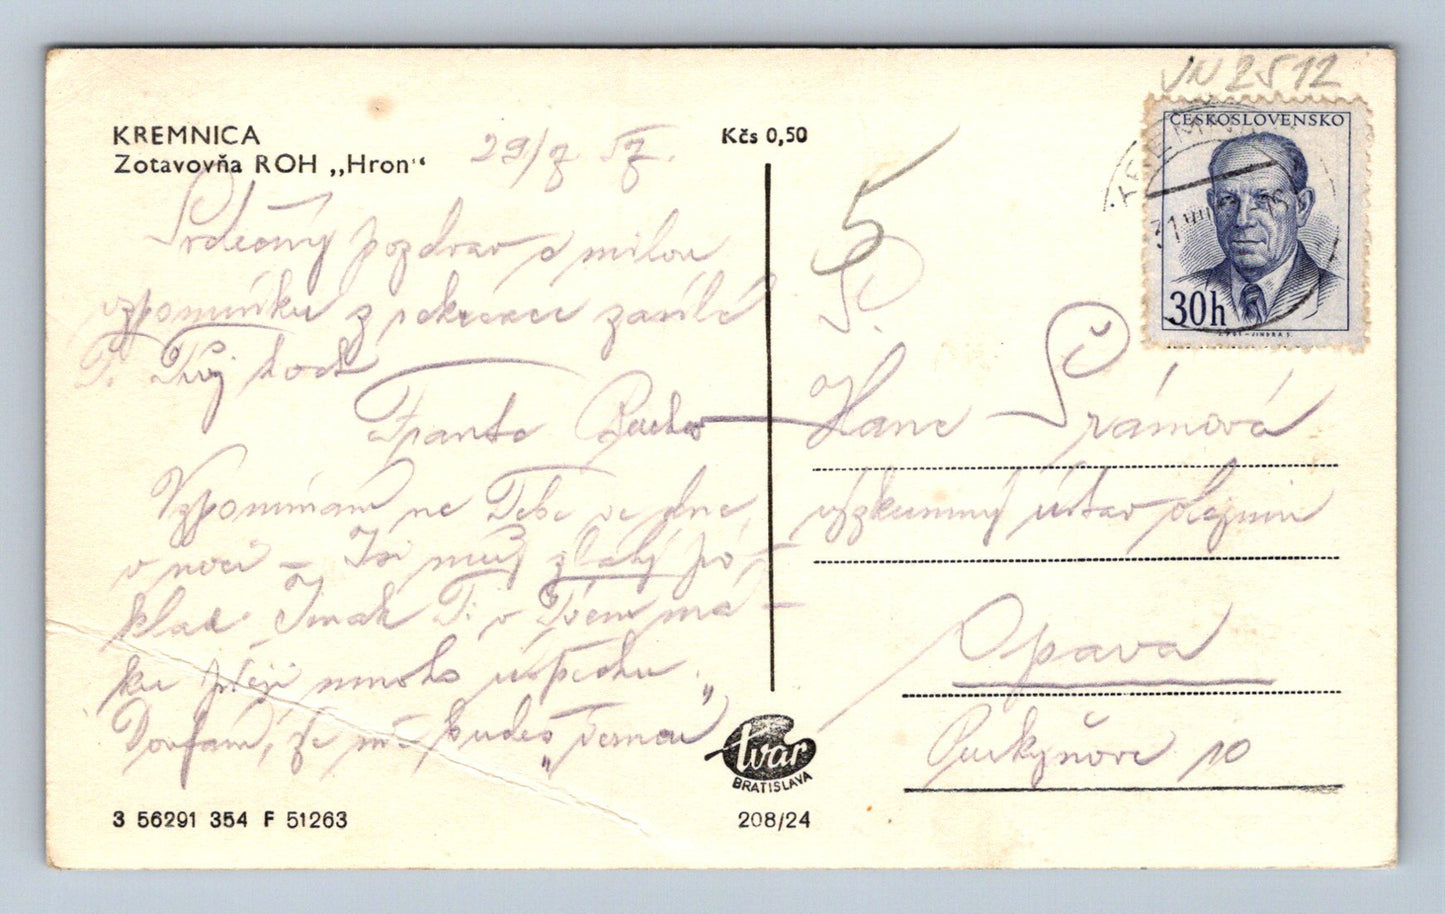 VN 2512
KREMNICA
Zotavovňa ROH „Hron"
29/7 57.
Kčs 0,50
ČESKOSLOVENSKO
30h
5
Srdečný pozdrav a milou
vzpomínku z rekreace zasílá
Ti Tvůj hoch
Franta
Vzpomínám na Tebe ve dne
v noci – Jsi můj zlatý po-
klad. Jinak Ti v
ku přeji mnoho úspěchu.
Doufám, že mě budeš
Hana Šrámová
výzkumný ústav olejnin
Opava
Purkyňova 10
tvar
BRATISLAVA
3 56291 354 F 51263
208/24